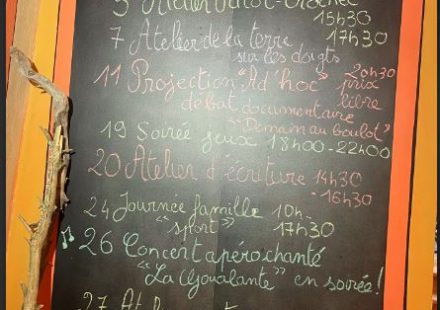 5 Atelier
15h30
7 Atelier de la terre 17h30
sur les doigts
11 Projection "Ad'hoc" 20h30
prix libre
débat documentaire
"Demain au boulot"
19 Soirée jeux 18h00-22h00
20 Atelier d'écriture 14h30
-16h30
24 Journée famille 10h-
"sport" 17h30
26 Concert apérochanté
"La Goualante" en soirée!
27